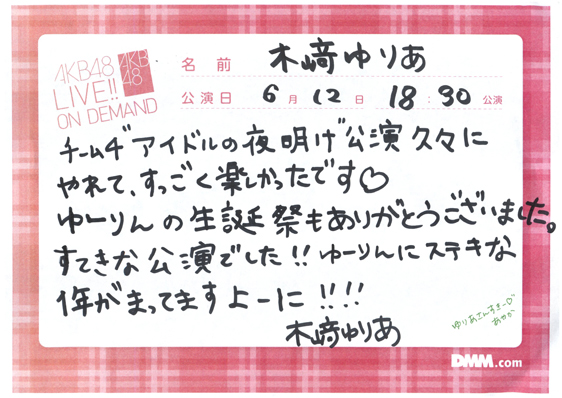 AKB48
LIVE!!
ON DEMAND
AKB
48
名前 木﨑ゆりあ
公演日 6月12日 18:30公演
チーム4"アイドルの夜明け"公演久々に
やれて、すっごく楽しかったです♡
ゆーりんの生誕祭もありがとうございました。
すてきな公演でした!!ゆーりんにステキな
1年がまってますよーに!!!
木﨑ゆりあ
ゆりあさんすきー♡
あやか
DMM.com